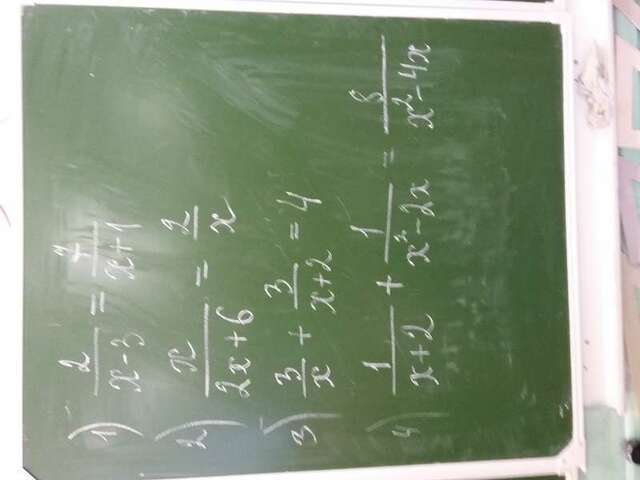 1) 2/(x-3) = 7/(x+1)
2) x/(2x+6) = 2/x
3) 3/x + 3/(x+2) = 4
4) 1/(x+2) + 1/(x²-2x) = 8/(x²-4x)